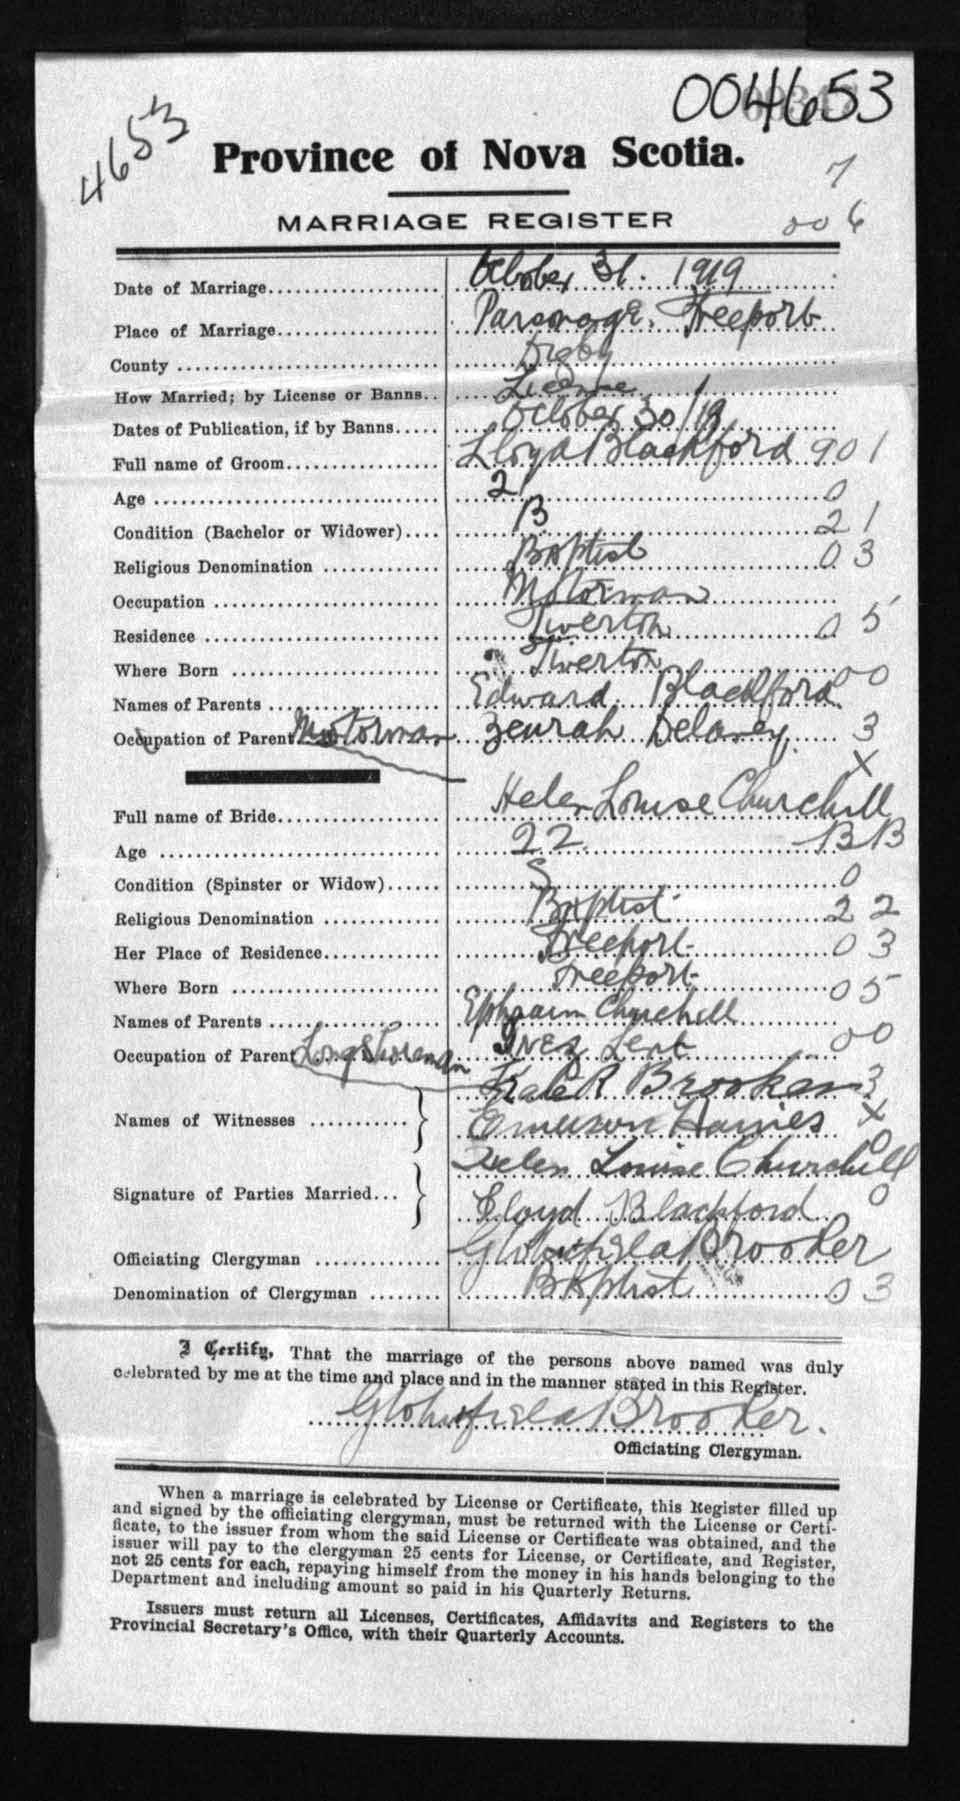 004653
4653
Province of Nova Scotia.
7
006
MARRIAGE REGISTER
Date of Marriage October 31. 1919
Place of Marriage Parsonage, Freeport
County Digby
How Married; by License or Banns License
Dates of Publication, if by Banns October 30/19
Full name of Groom Lloyd Blackford 901
Age 21 0
Condition (Bachelor or Widower) B 21
Religious Denomination Baptist 03
Occupation Motorman
Residence Tiverton 05
Where Born Tiverton 00
Names of Parents Edward Blackford
Occupation of Parent Motorman Zeurah Delaney 3
X
Full name of Bride Helen Louise Churchill
Age 22 BB
Condition (Spinster or Widow) S 0
Religious Denomination Baptist 22
Her Place of Residence Freeport 03
Where Born Freeport 05
Names of Parents Ephraim Churchill
Occupation of Parent Longshoreman Inez Lent 00
R Brooker 3
Names of Witnesses Emerson Haines X
0
Helen Louise Churchill
Signature of Parties Married Lloyd Blackford 0
Officiating Clergyman Brooker
Denomination of Clergyman Baptist 03
I Certify, That the marriage of the persons above named was duly
celebrated by me at the time and place and in the manner stated in this Register.
Brooker.
Officiating Clergyman.
When a marriage is celebrated by License or Certificate, this Register filled up
and signed by the officiating clergyman, must be returned with the License or Certi-
ficate, to the issuer from whom the said License or Certificate was obtained, and the
issuer will pay to the clergyman 25 cents for License, or Certificate, and Register,
not 25 cents for each, repaying himself from the money in his hands belonging to the
Department and including amount so paid in his Quarterly Returns.
Issuers must return all Licenses, Certificates, Affidavits and Registers to the
Provincial Secretary's Office, with their Quarterly Accounts.